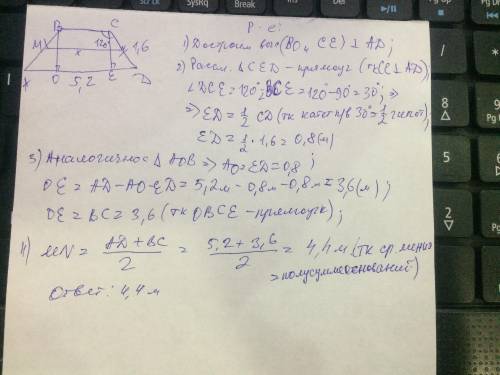 B C
M 120° 1,6
x
A O 5,2 E D
Р-е:
1) Достроим выс (BO и CE) ⊥ AD;
2) Рассм. ΔCED - прямоуг (тк CE ⊥ AD)
∠DCE = 120° - ∠BCE = 120° - 90° = 30°; ⇒
⇒ ED = 1/2 CD (тк катет п/в 30° = 1/2 гипот);
ED = 1/2 · 1,6 = 0,8 (м)
3) Аналогично с Δ AOB ⇒ AO = ED = 0,8;
OE = AD - AO - ED = 5,2м - 0,8м - 0,8м = 3,6 (м);
OE = BC = 3,6 (тк OBCE - прямоуг);
4) MN = AD + BC / 2 = 5,2 + 3,6 / 2 = 4,4 м (тк ср линия
= полусумме оснований)
Ответ: 4,4 м
SysRq
Break
Pause
Home
7
8
9
Pg Up
2
3
Pg Dn